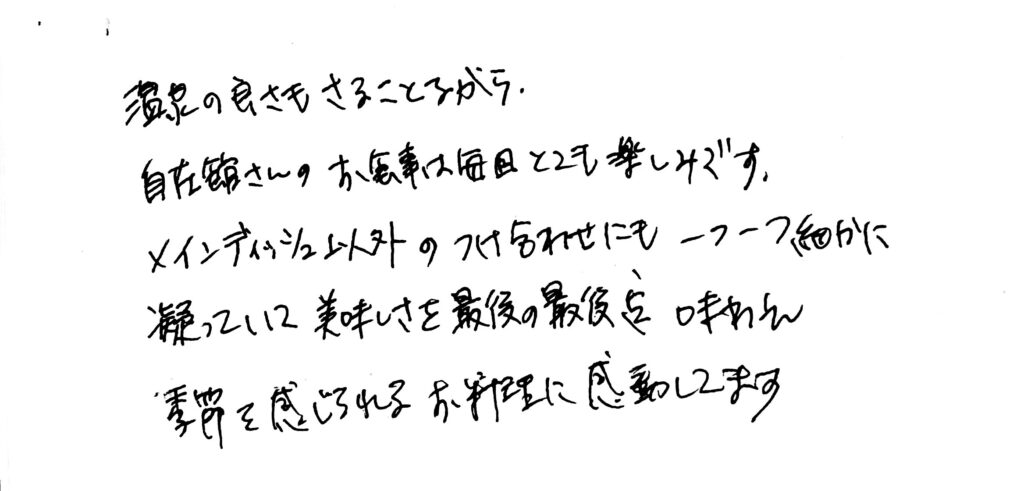 温泉の良さもさることながら、
自在館さんのお食事は毎回とても楽しみです。
メインディッシュ以外のつけ合わせにも一つ一つ細かに
凝っていて美味しさを最後の最後迄味わえ
季節を感じられるお料理に感動してます